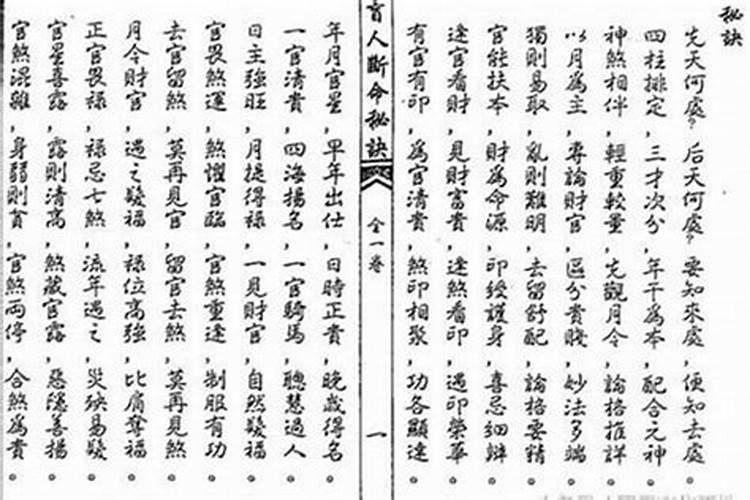 秘訣
先天何處?后天何處?要知來處,便知去處。
四柱排定,三才次分,年干為本,配合元神。
神煞相伴,輕重較量,先觀月令,論格推詳。
以月為主,專論財官,區分貴賤,妙法多端。
獨則易取,亂則難明,去留舒配,論格要精。
官能扶本,財為命源,印綬護身,喜忌細辨。
逢官看財,見財富貴,逢煞看印,遇印榮華。
有官有印,為官清貴,煞印相聚,功各顯達。
盲人斷命秘訣
全一卷
一
年月官星,早年出仕,日時正貴,晚歲得名。
一官清貴,四海揚名,一官騎馬,聰慧過人。
日主強旺,月提得祿,一見財官,自然發福。
官畏煞運,煞懼官臨,官煞重逢,制服有功。
去官留煞,莫再見官,留官去煞,莫再見煞。
月令財官,遇之發福,祿位高強,比肩奪福。
正官畏祿,祿忌七煞,流年遇之,災殃易發。
官星喜露,露則清高,煞藏官露,惡隱善揚。
官煞混雜,身弱則貧,官煞兩停,合煞為貴。